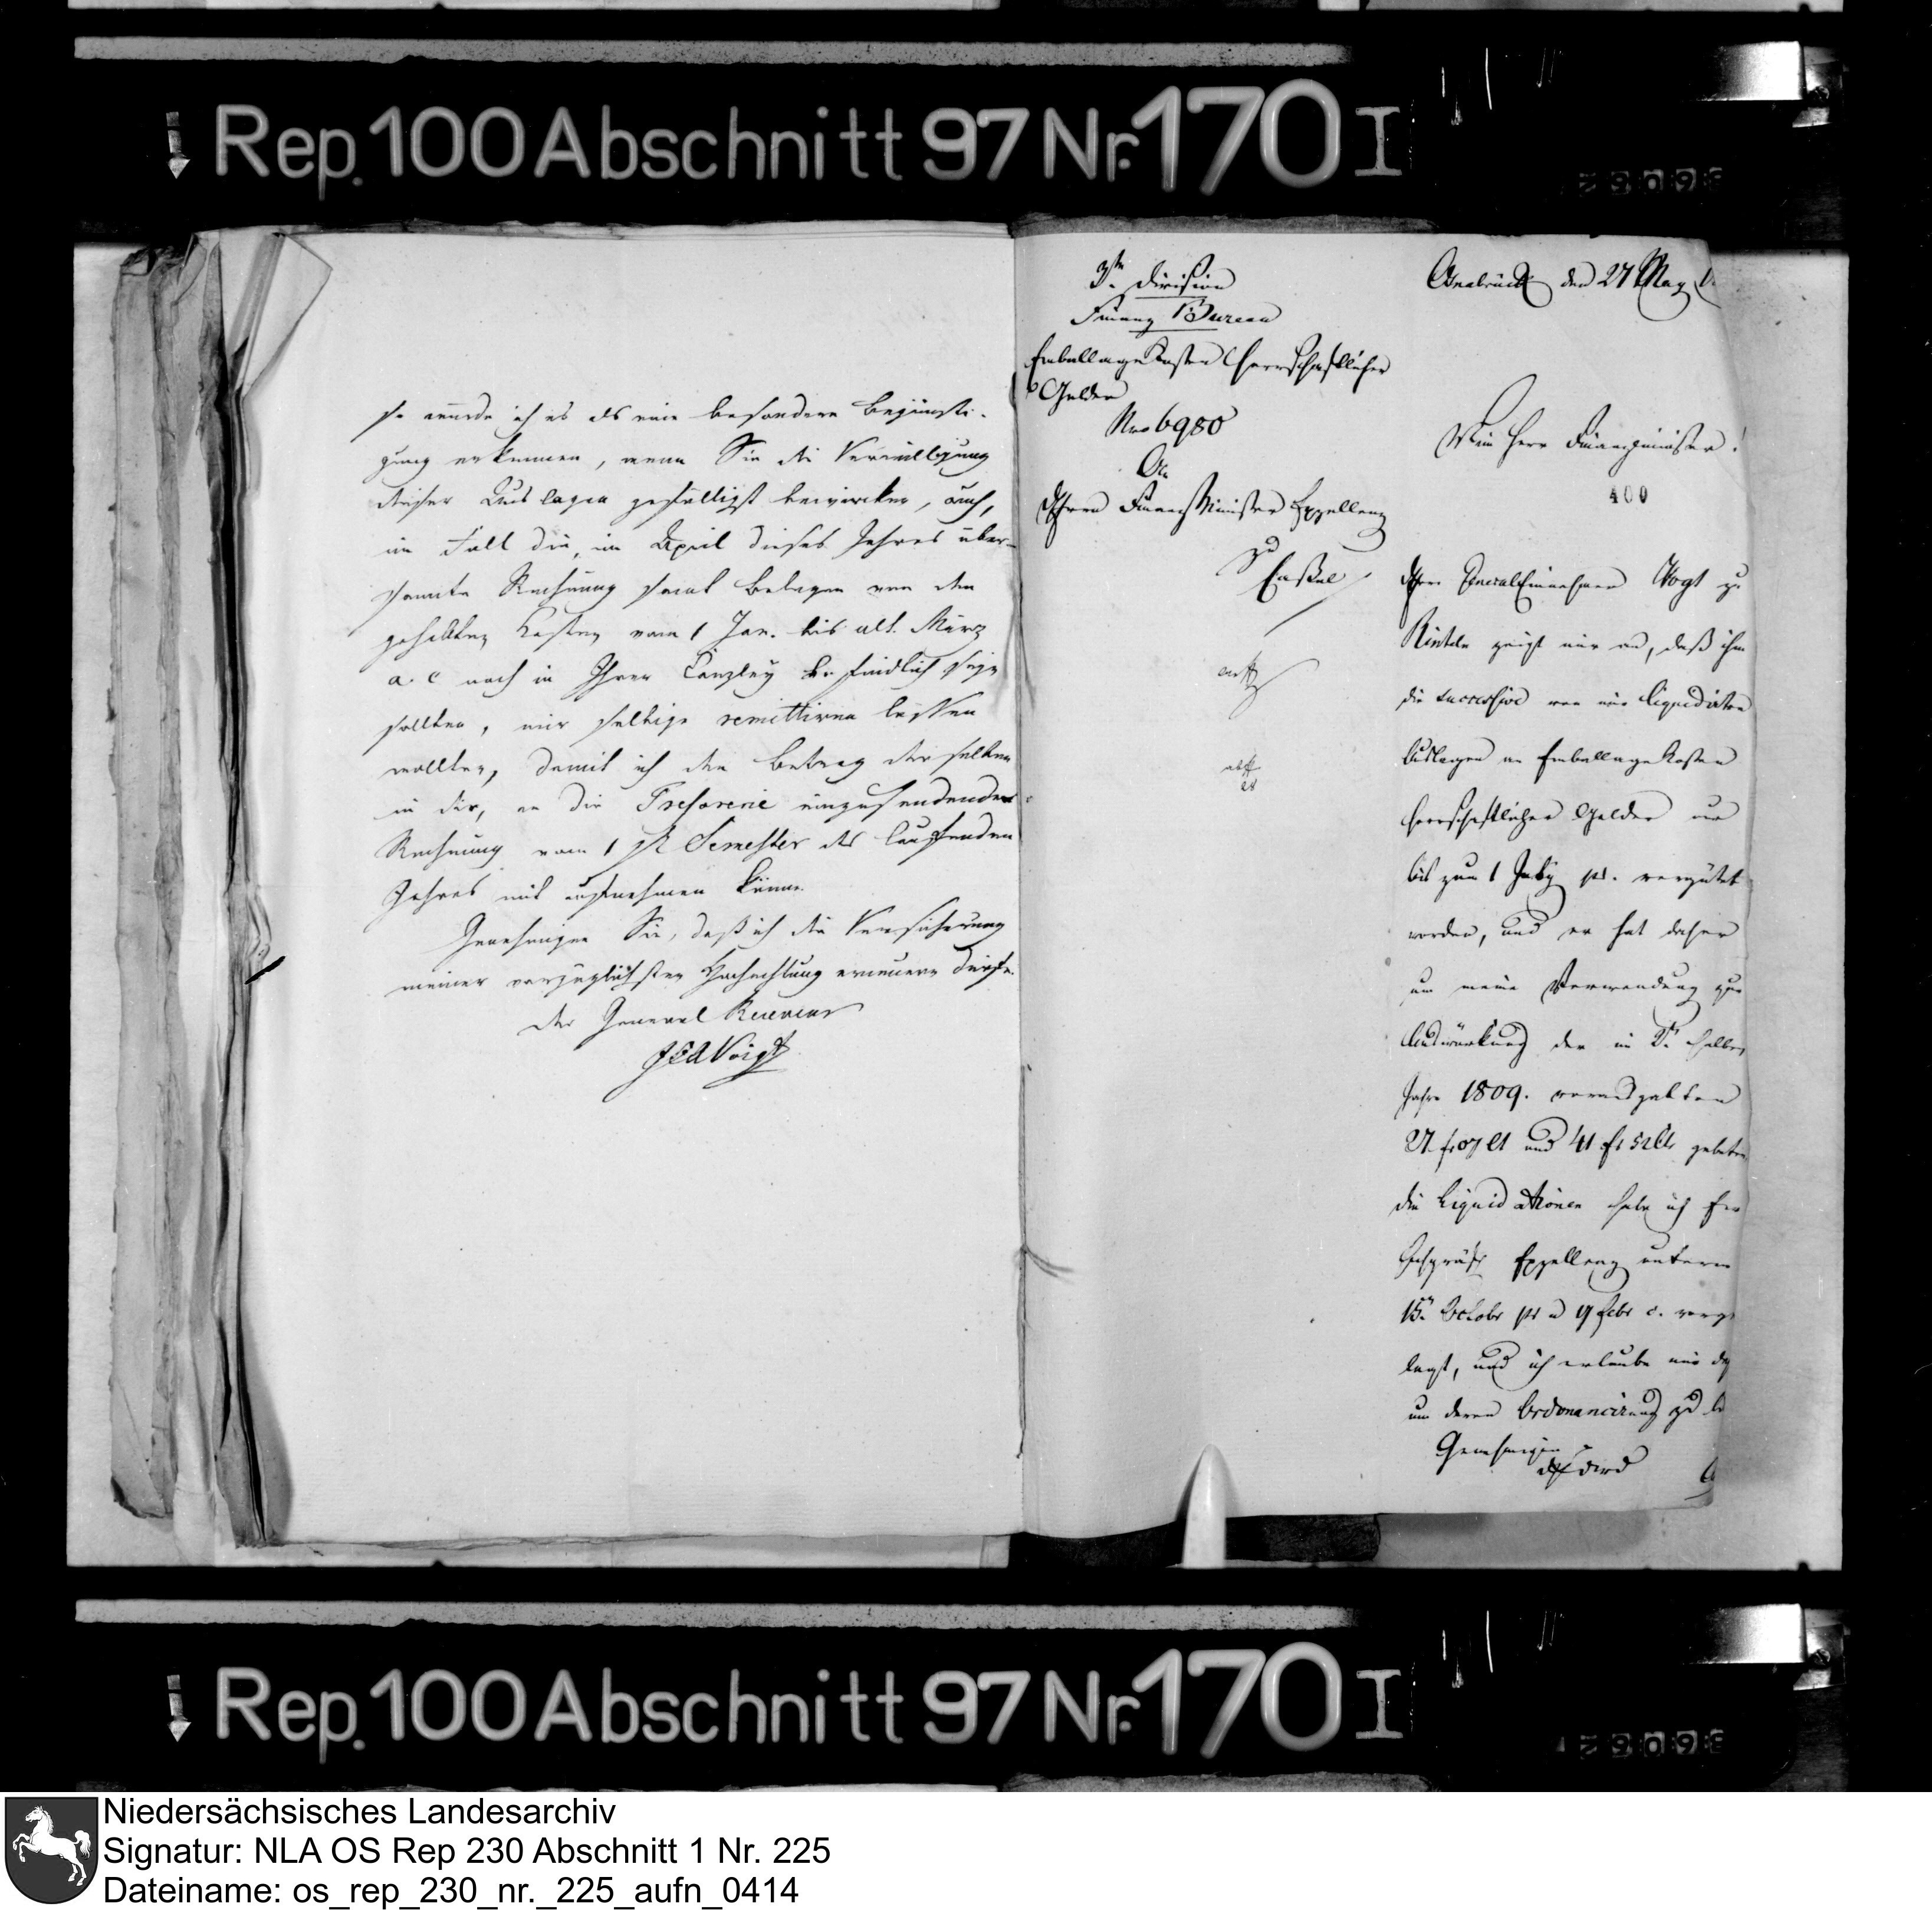 Rep. 100 Abschnitt 97 Nr. 170 I
so würde ich es als eine besondere Begünsti-
gung erkennen, wenn Sie die Verwilligung
dieser Auslagen gefälligst bewircken, auch,
im Fall die, im April dieses Jahres über-
sannte Rechnung samt Belegen von den
gehabten Kosten vom 1 Jan. bis ult. März
a. c noch in Ihrer Canzley befindlich seyn
sollten, mir selbige remittiren lassen
wollten, damit ich den Betrag derselben
in die, an die Tresorerie einzusendenden
Rechnung vom 1 Semester des laufenden
Jahres mit aufnehmen könne.
Genehmigen Sie, daß ich die Versicherung
meiner vorzüglichsten Hochachtung erneuern dürfe.
Der General Receveur
Voigt
3te Division
Finanz Bureau
Emballage Kosten Herrschaftlicher
Gelder
Nro 6980
An
Herrn Finanz Minister Exzellenz
zu
Caßel
Osnabrück den 27 May
Mein Herr Finanzminister!
400
Herr General Einnehmer Vogt zu
Rinteln zeigt mir an, daß ihm
die successive von mir liquidirten
Auslagen an Emballage Kosten
herrschaftlicher Gelder nur
bis zum 1 July pr. vergütet
worden, und er hat daher
um meine Verwendung zur
Auswürkung der im 2n halben
Jahre 1809. verausgabten
und 41 fr 52 Ct gebeten
die Liquidationen habe ich Ew
Exzellenz unterm
15n Octobr pr u 9 Febr c. vorge
legt, und ich erlaube mir
um deren Ordonancirung zu
Genehmigen
Rep. 100 Abschnitt 97 Nr. 170 I
Niedersächsisches Landesarchiv
Signatur: NLA OS Rep 230 Abschnitt 1 Nr. 225
Dateiname: os_rep_230_nr._225_aufn_0414